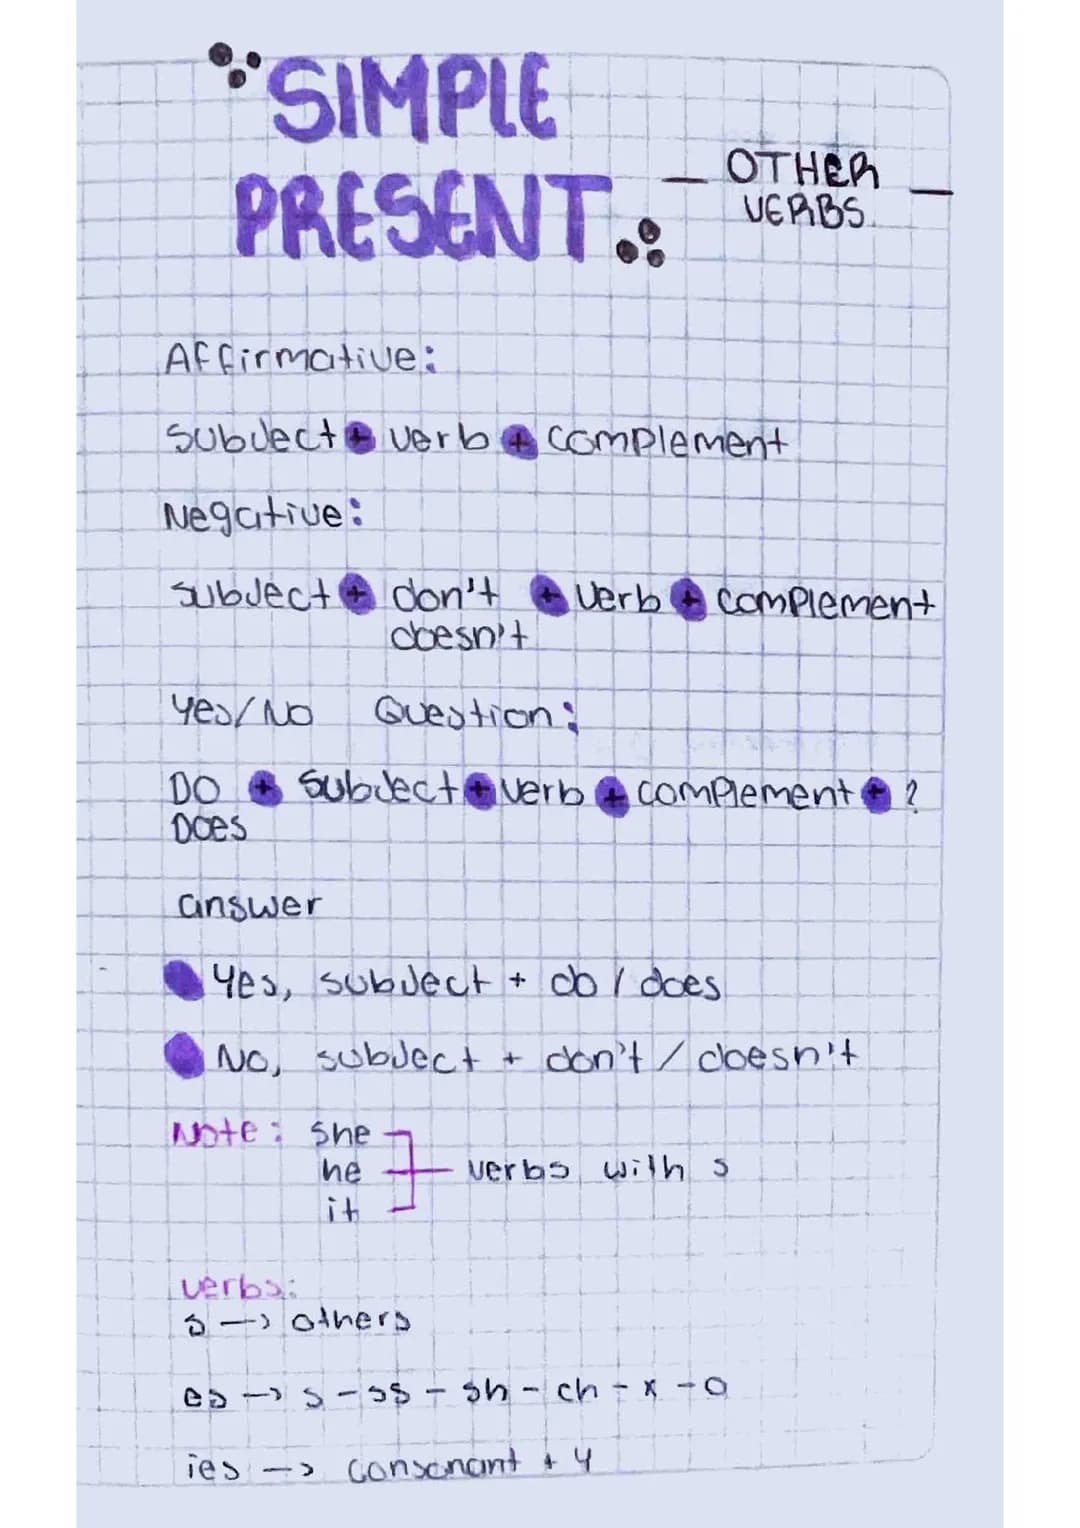 SIMPLE
PRESENT
— OTHER VERBS —
Affirmative:
subject + verb + complement
Negative:
subject + don't + verb + complement
doesn't
Yes/No Question:
DO + subject + verb + complement + ?
DOES
answer
Yes, subject + do / does
No, subject + don't / doesn't
Note: she
he verbs with s
it
verbs:
s → others
es → s - ss - sh - ch - x - o
ies → consonant + y